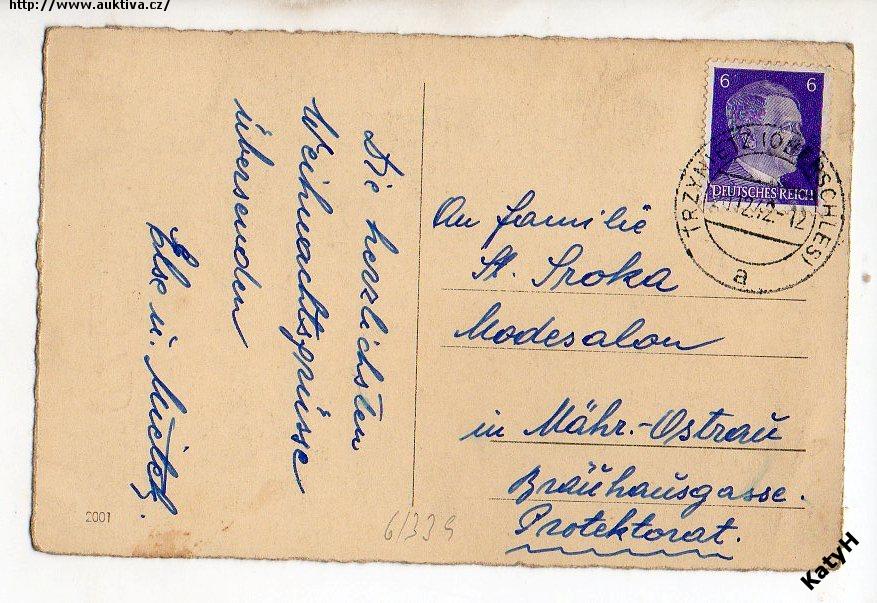 http://www.auktiva.cz/
Die herzlichsten
Weihnachtsgrüsse
übersenden
Else u.
6 6
DEUTSCHES REICH
TRZYNIETZ (OBERSCHLES)
12.42.-12
a
An Familie
St. Sroka
Modesalon
in Mähr.-Ostrau
Bräuhausgasse.
Protektorat.
2001
6/339
KatyH